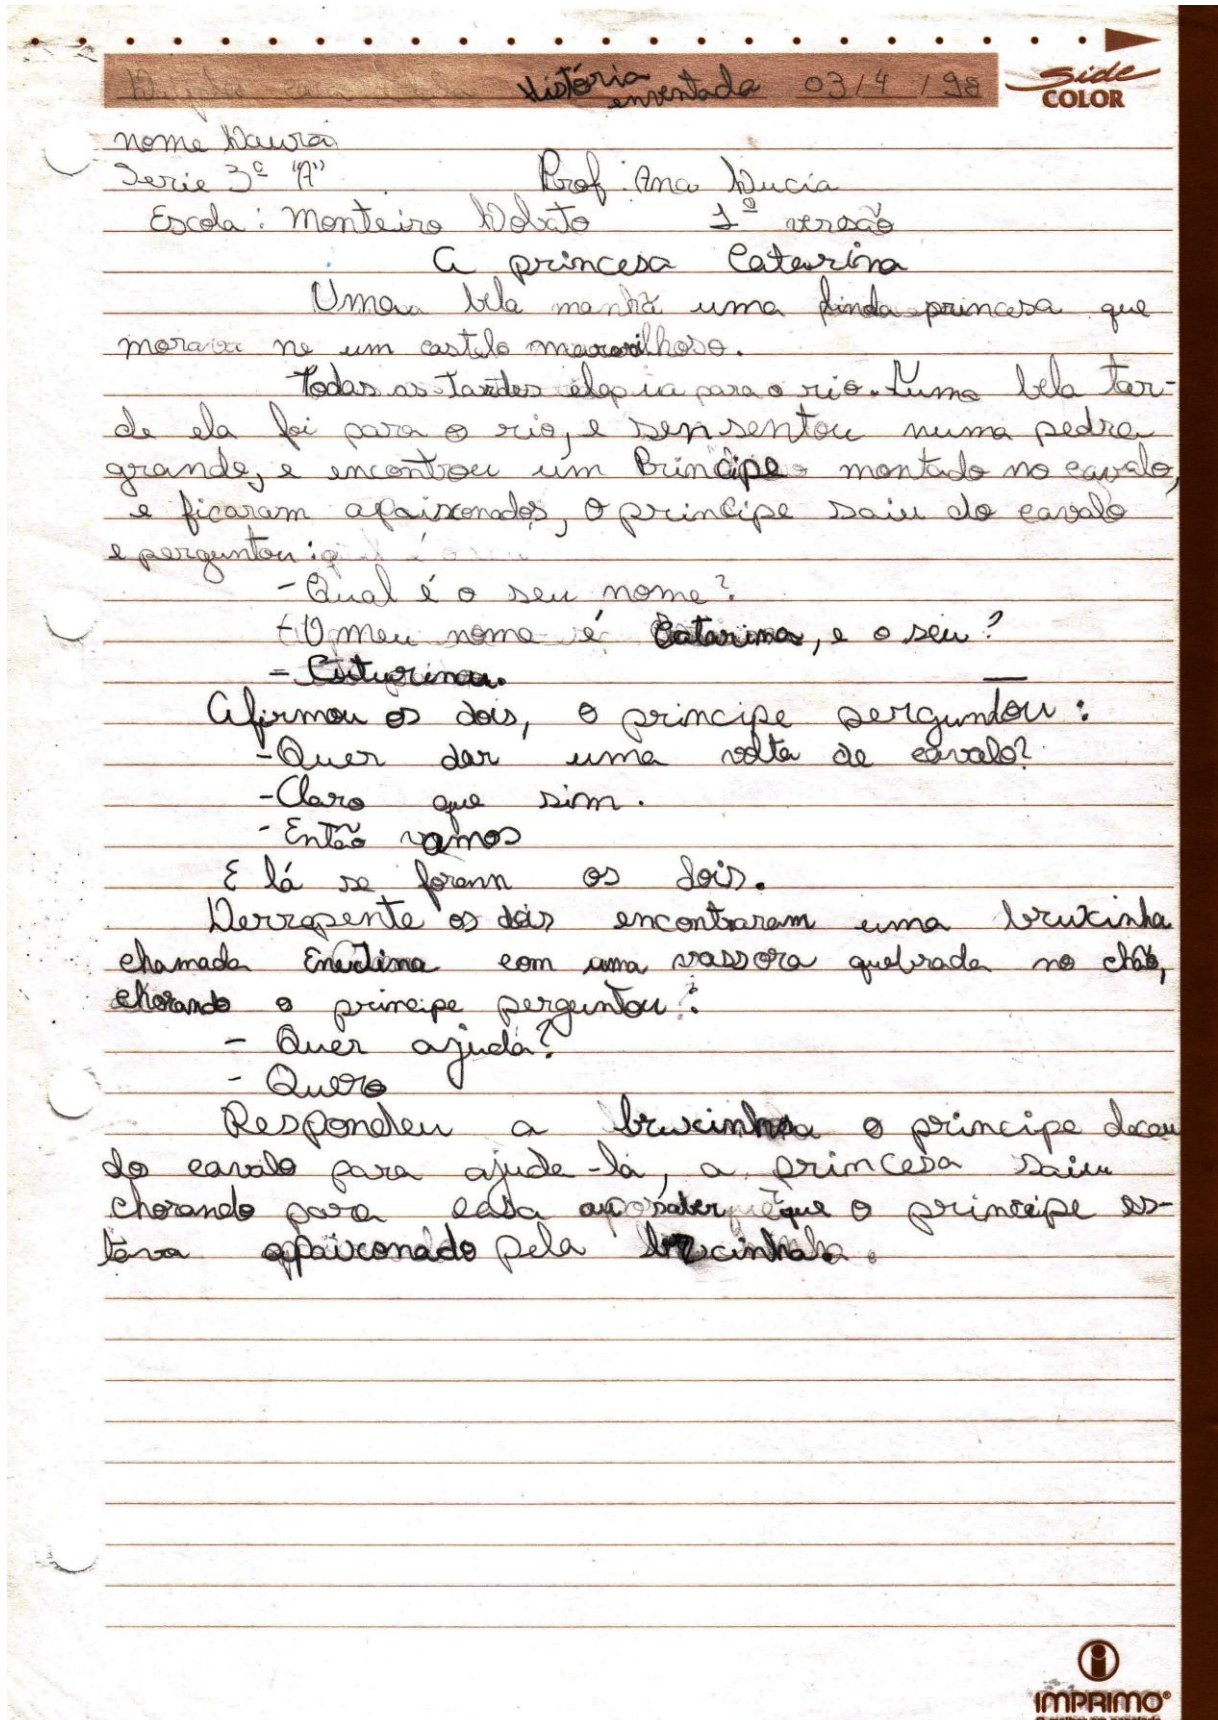 História
enventada 03/4/98
Side
COLOR
nome Laura
Serie 3º "A" Prof: Ana Lucia
Escola: Monteiro Lobato 1º versão
A princesa Catarina
Uma bela manhã uma linda princesa que
morava ne um castelo maravilhoso.
Todas as tardes ela ia para o rio. Numa bela tar-
de ela foi para o rio, e sentou numa pedra
grande, e encontrou um Principe montado no cavalo,
e ficaram apaixonados, o principe saiu do cavalo
e perguntou:
- Qual é o seu nome?
- O meu nome é Catarina, e o seu?
-
Afirmou os dois, o principe perguntou:
- Quer dar uma volta de cavalo?
- Claro que sim.
- Então vamos
E lá se foram os dois.
Derrepente os dois encontraram uma bruxinha
chamada com uma vassora quebrada no chão,
chorando o principe perguntou:
- Quer ajuda?
- Quero
Respondeu a bruxinha o principe deceu
do cavalo para ajuda-la, a princesa saiu
chorando para casa ao saber que o principe es-
tava apaixonado pela bruxinha.
IMPRIMO®